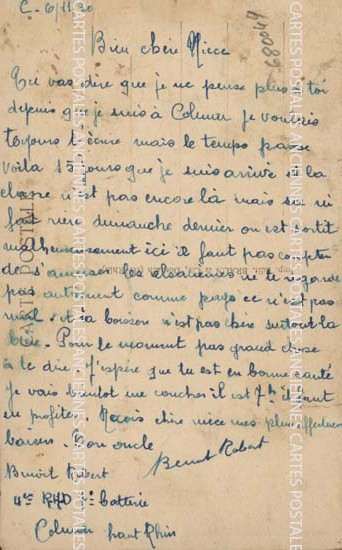 C. 6/11/30
680044
Bien chère Nièce
Tu vas dire que je ne pense plus à toi
depuis que je suis à Colmar je voulais
toujours t'écrire mais le temps passe
voila 15 jours que je suis arrivé et la
classe n'est pas encore là mais sa ni
fait rien dimanche dernier on est sortit
malheureusement ici il faut pas compter
de s'amuser les alsaciennes ne te regarde
pas autrement comme pays ce n'est pas
mal. et la boisson n'est pas chère surtout la
bière. Pour le moment pas grand chose
à te dire. J'espère que tu est en bonne santé
Je vais bientot me coucher il est 7h il faut
en profiter. Reçois chère nièce mes plus affectueux
baisers. Ton oncle
Benoit Robert
Benoit Robert
4e batterie
Colmar haut Rhin
CARTE POSTALE
CARTES POSTALES ANCIENNES CARTES POSTALES ANCIENNES CARTES POSTALES